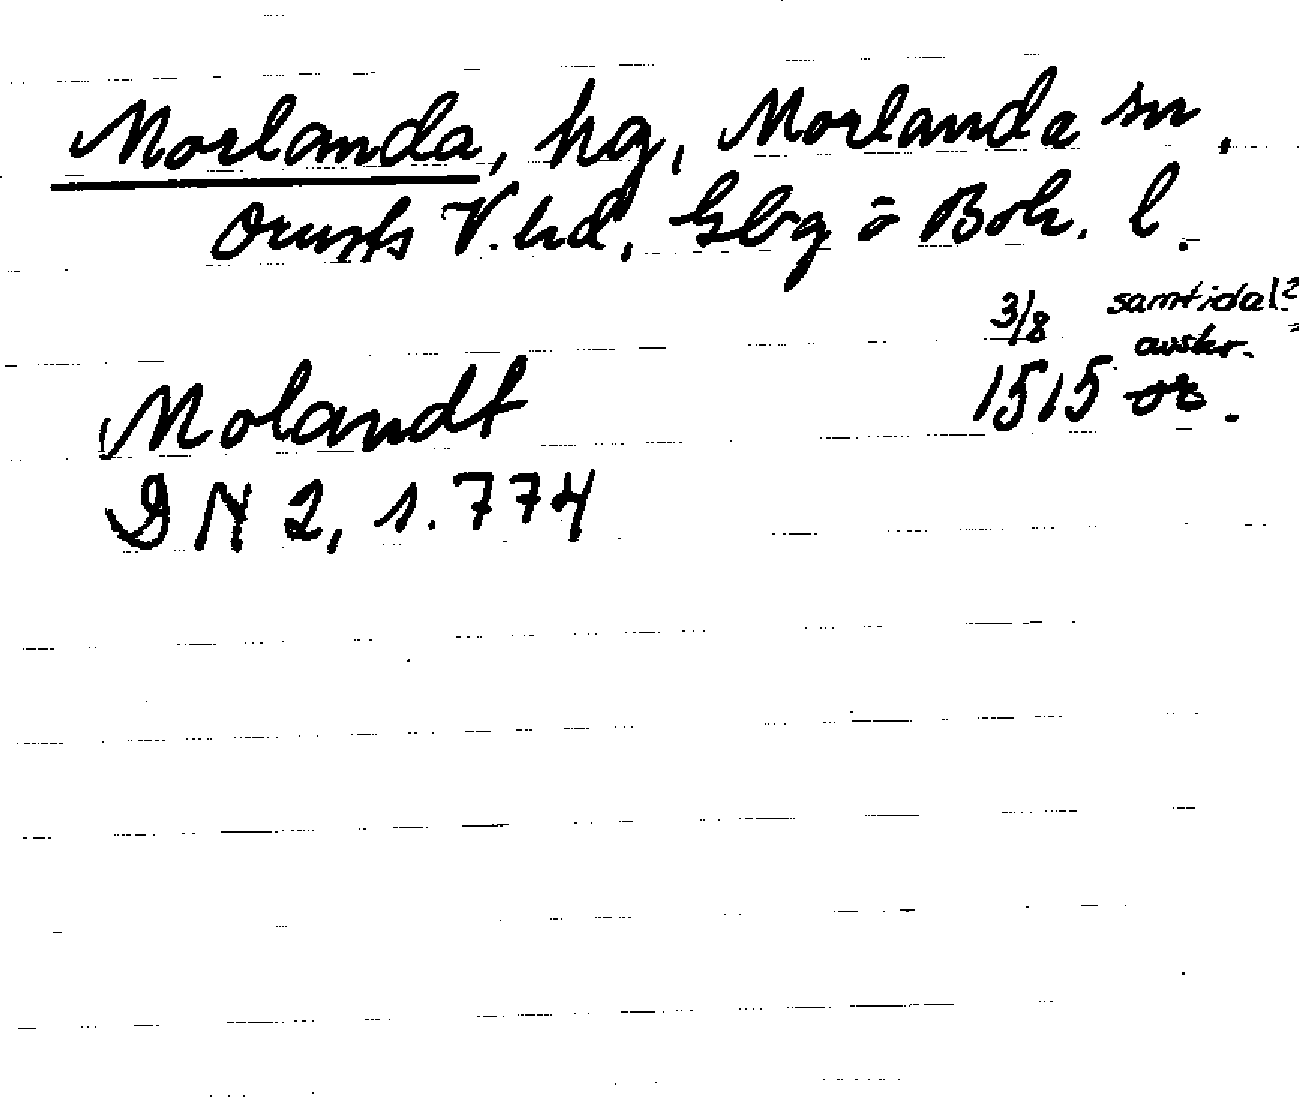 Morlanda, hg, Morlanda sn.
Orusts V. hd, Gbg o Boh. l.
3/8 samtida l?
avskr.
Molandt 1515 or.
DN 2, s. 774